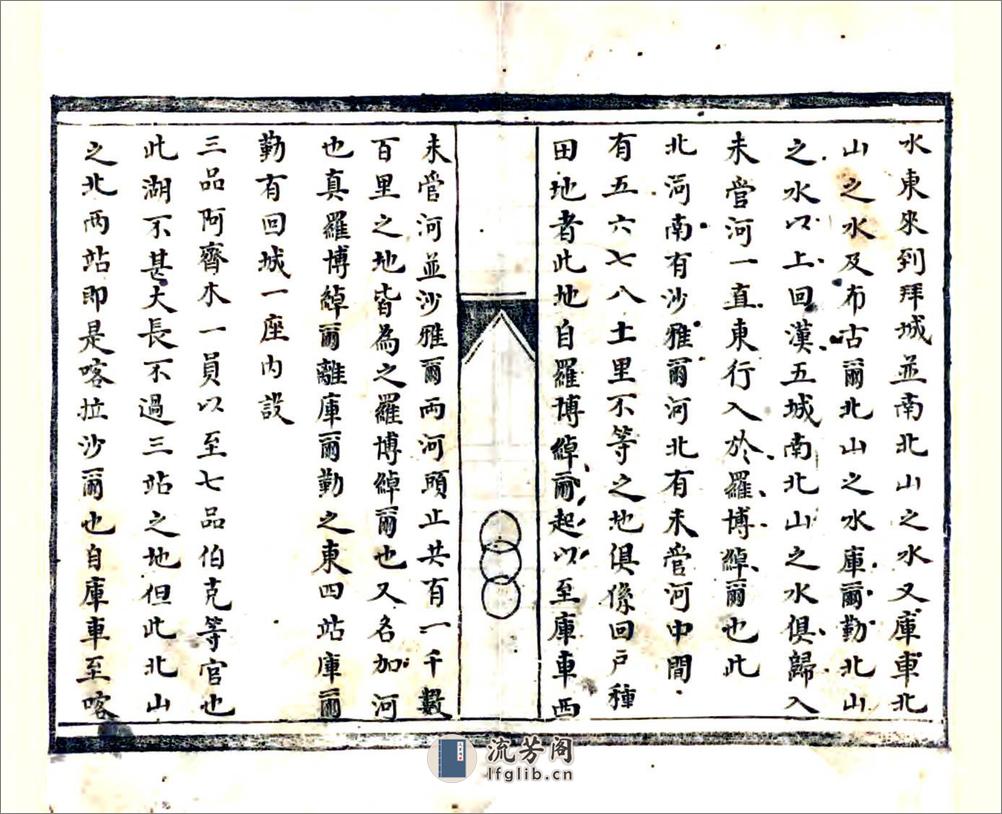 水東來到拜城並南北山之水又庫車北
山之水及布古爾北山之水庫爾勤北山
之水以上回漢五城南北山之水俱歸入
未管河一直東行入於羅博綽爾也此
北河南有沙雅爾河北有未管河中間
有五六七八十里不等之地俱係回戶種
田地者此地自羅博綽爾起以至庫車西
未管河並沙雅爾兩河頭止共有一千數
百里之地皆為之羅博綽爾也又名加河
也真羅博綽爾離庫爾勤之東四站庫爾
勤有回城一座內設
三品阿齊木一員以至七品伯克等官也
此湖不甚大長不過三站之地但此北山
之北兩站即是喀拉沙爾也自庫車至喀
流芳阁
lfglib.cn